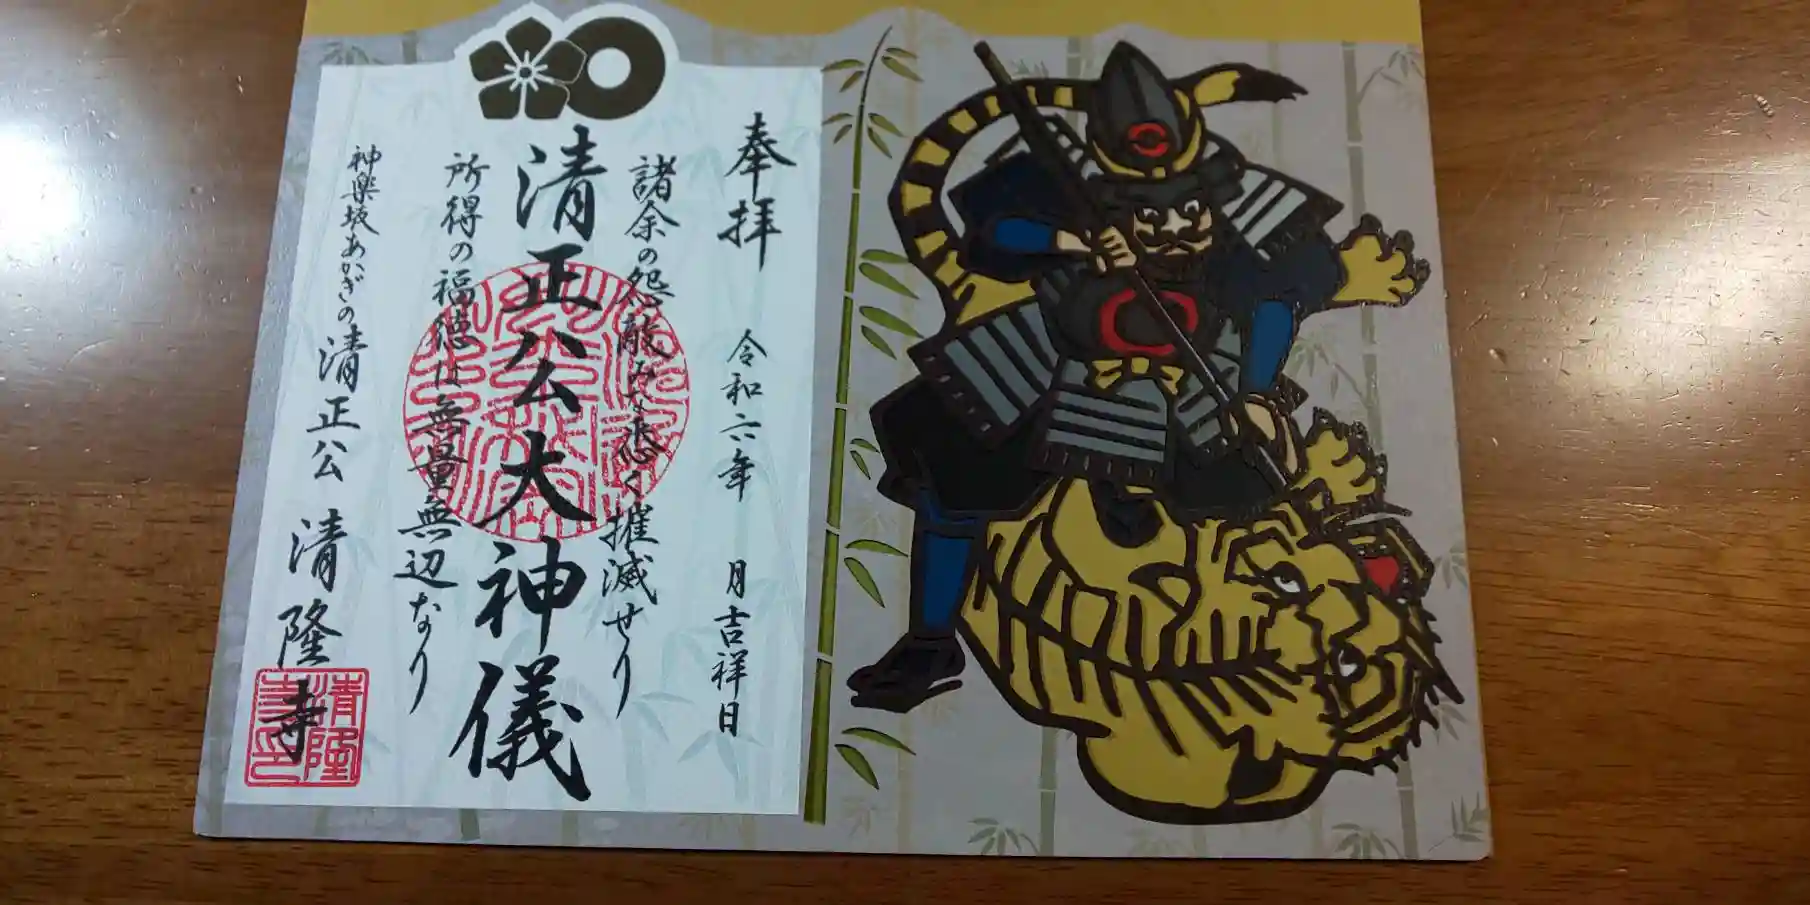 奉拝
令和六年 月吉祥日
諸余の怨敵みな悉く摧滅せり
清正公大神儀
所得の福徳は無量無辺なり
神楽坂あかぎの清正公 清隆寺